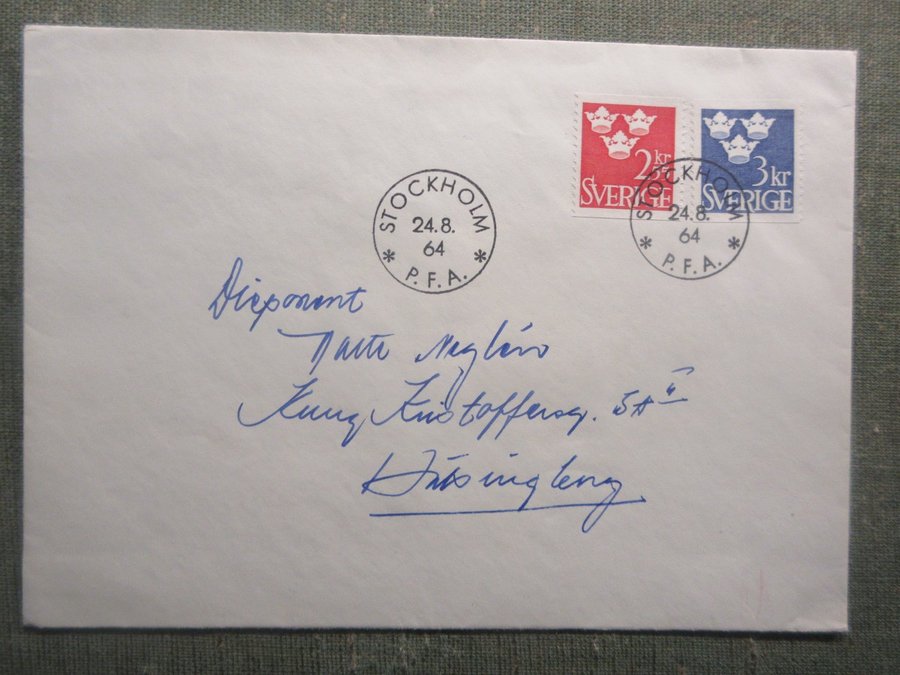 2 55 kr
SVERIGE
3 kr
SVERIGE
STOCKHOLM
24.8.
64
* P.F.A. *
STOCKHOLM
24.8.
64
* P.F.A. *
Disponent
Kung Kristoffersg. 5A
Hälsingborg